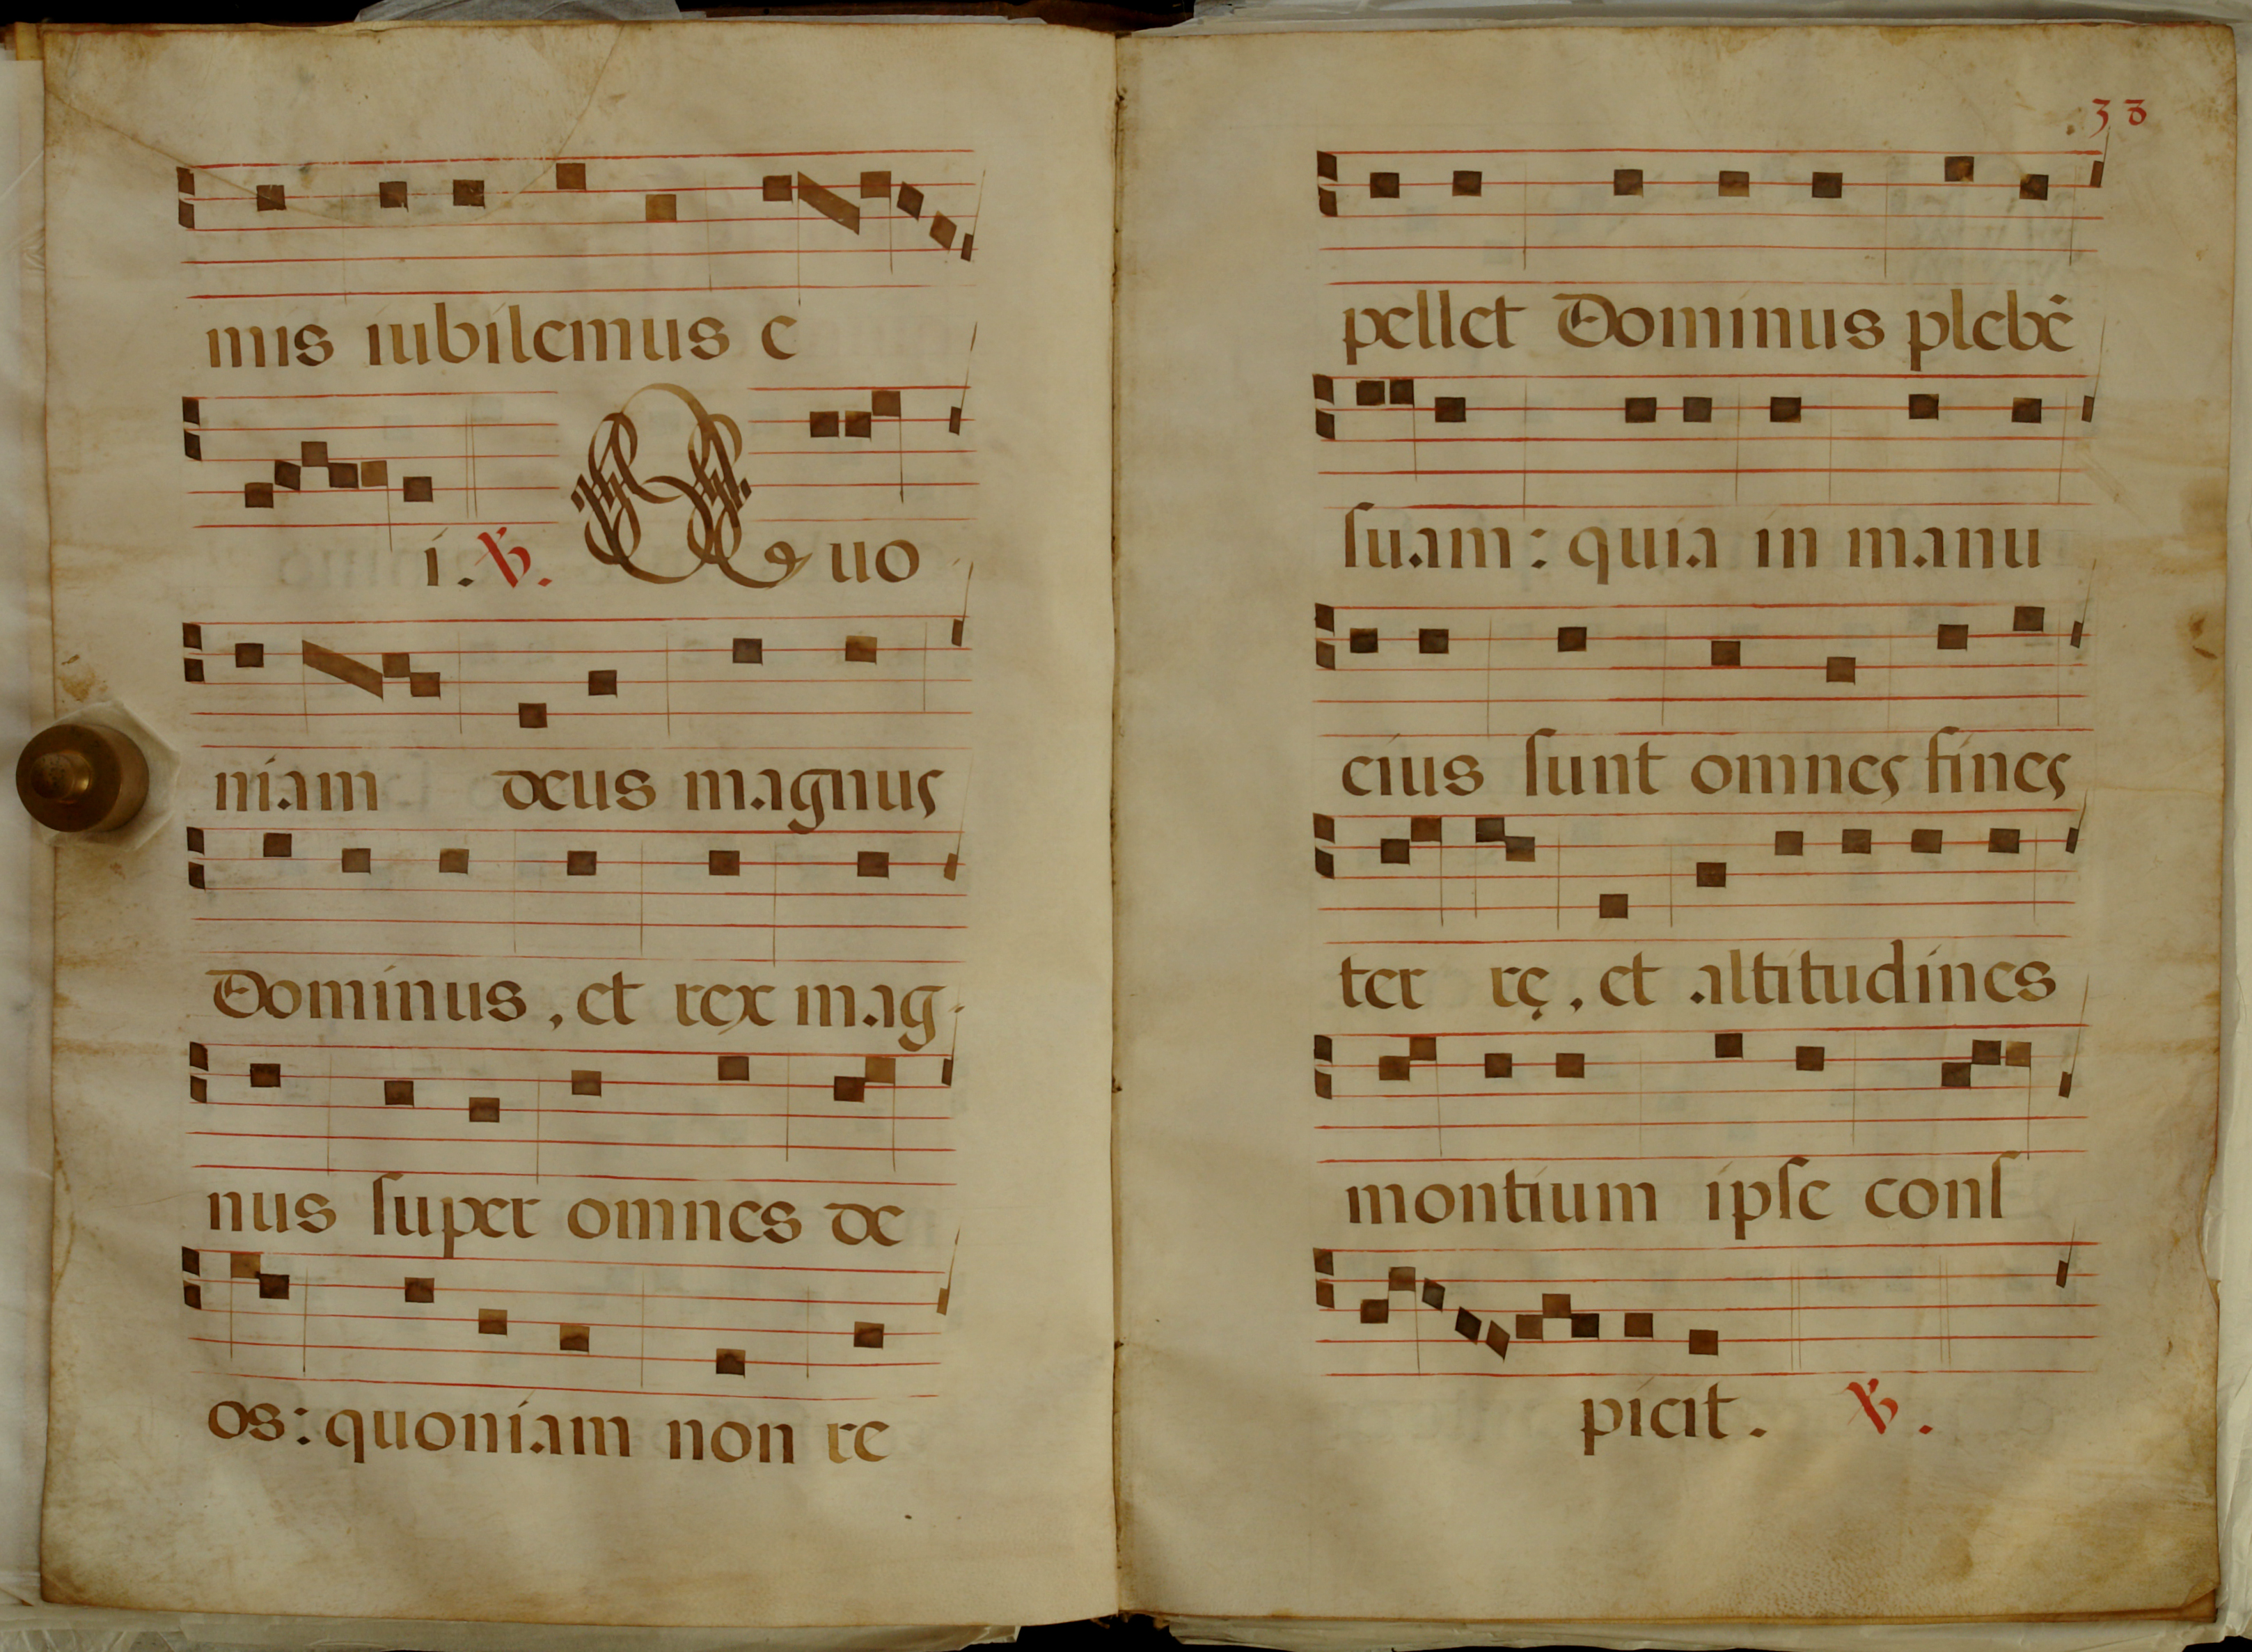 mis iubilemus e
i. ℣. Quo
niam deus magnus
Dominus, et rex mag-
nus super omnes de
os: quoniam non re
33
pellet Dominus plebē
suam: quia in manu
eius sunt omnes fines
ter rę, et altitudines
montium ipse cons
picit. ℣.